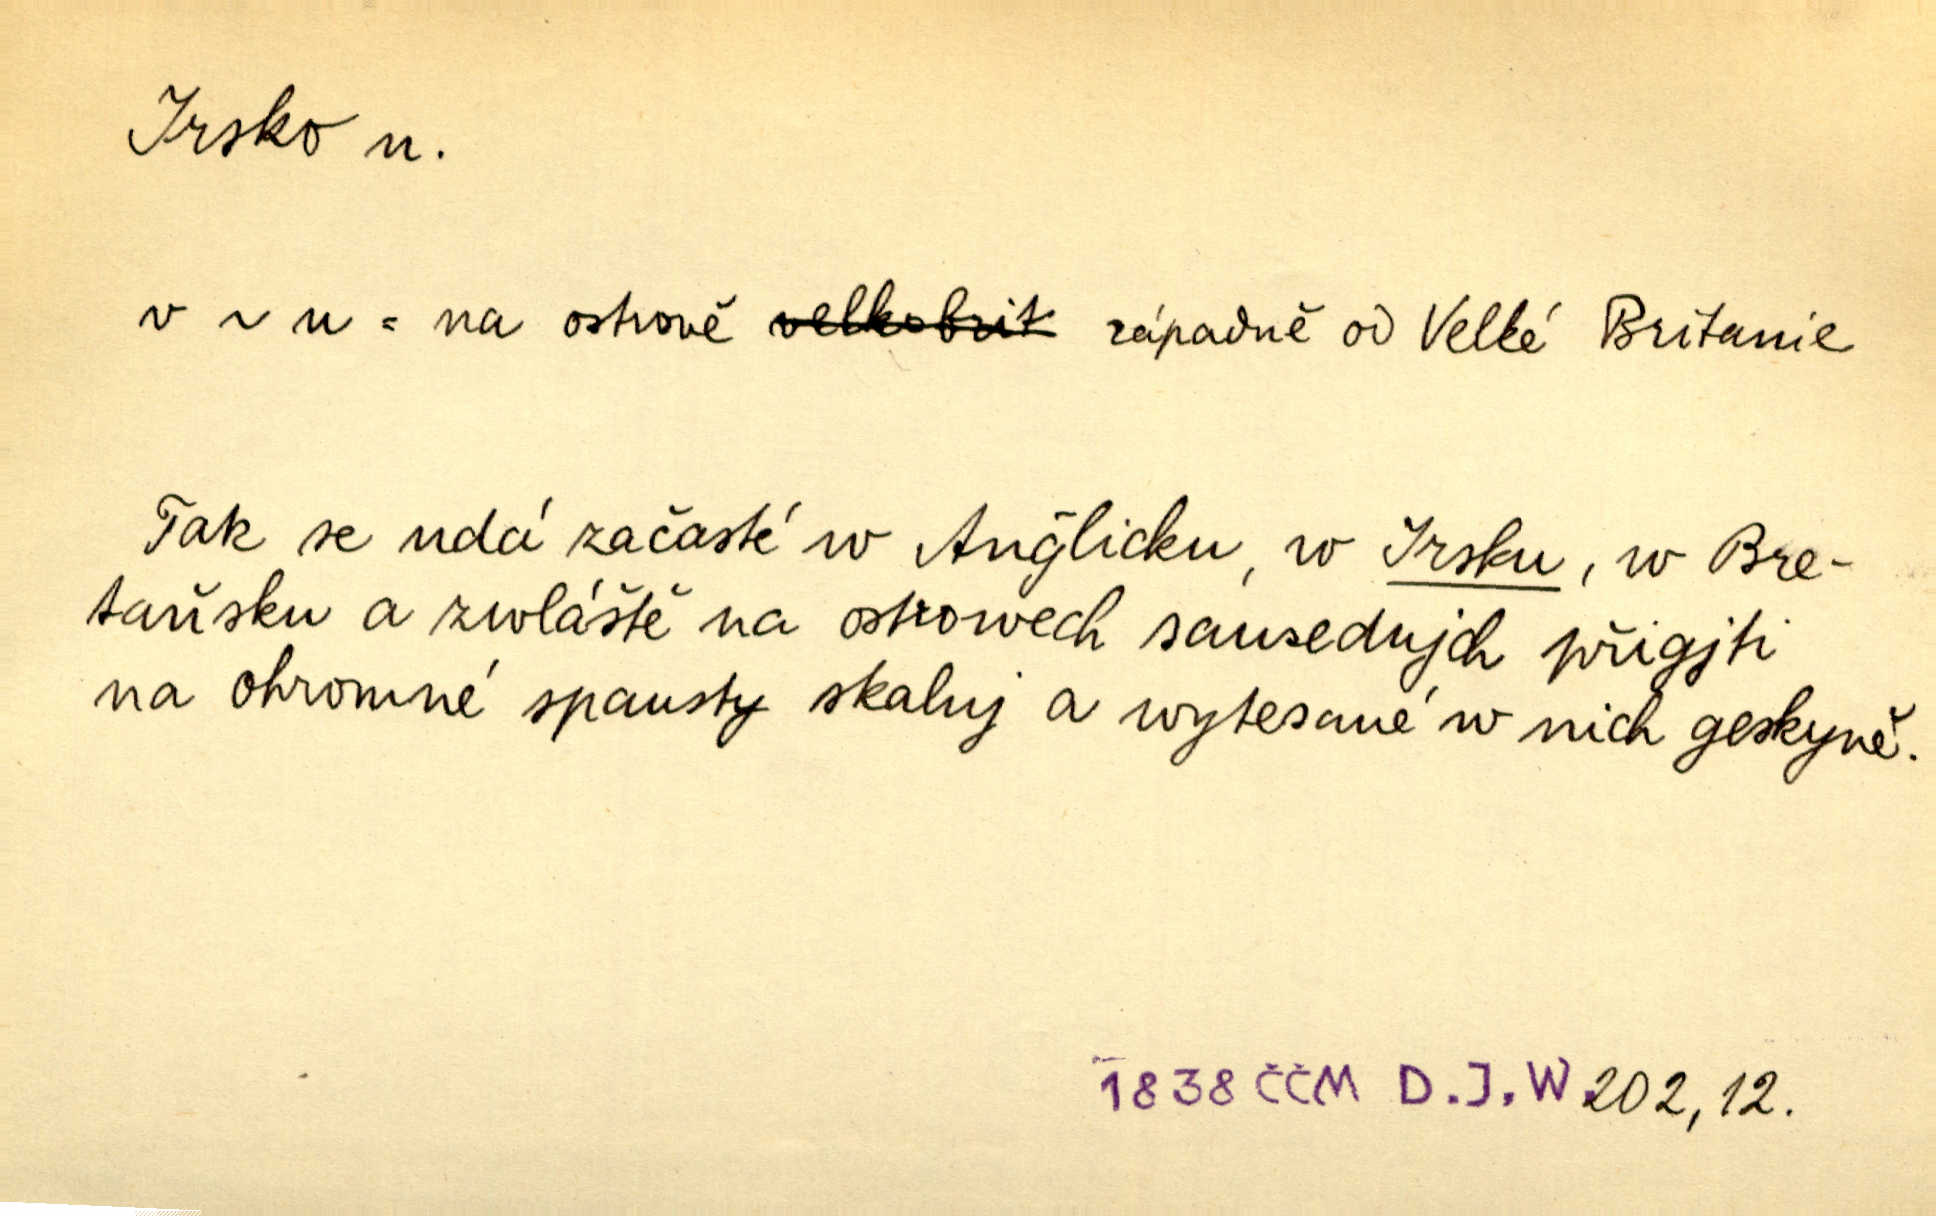 Irsko n.
v ~ u = na ostrově velkobrit západně od Velké Britanie
Tak se udá začasté w Anğlicku, w Irsku, w Bre-
taňsku a zwláště na ostrowech sausednjch přigjti
na ohromné spausty skalnj a wytesané w nich geskyně.
1838 ČČM D.J.W. 202,12.